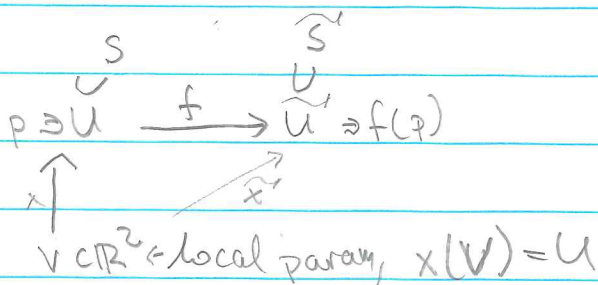 S S̃
∪ ∪
p ∋ U f→ Ũ ∋ f(p)
x x̃
V ⊂ ℝ² ← local param, x(V) = U